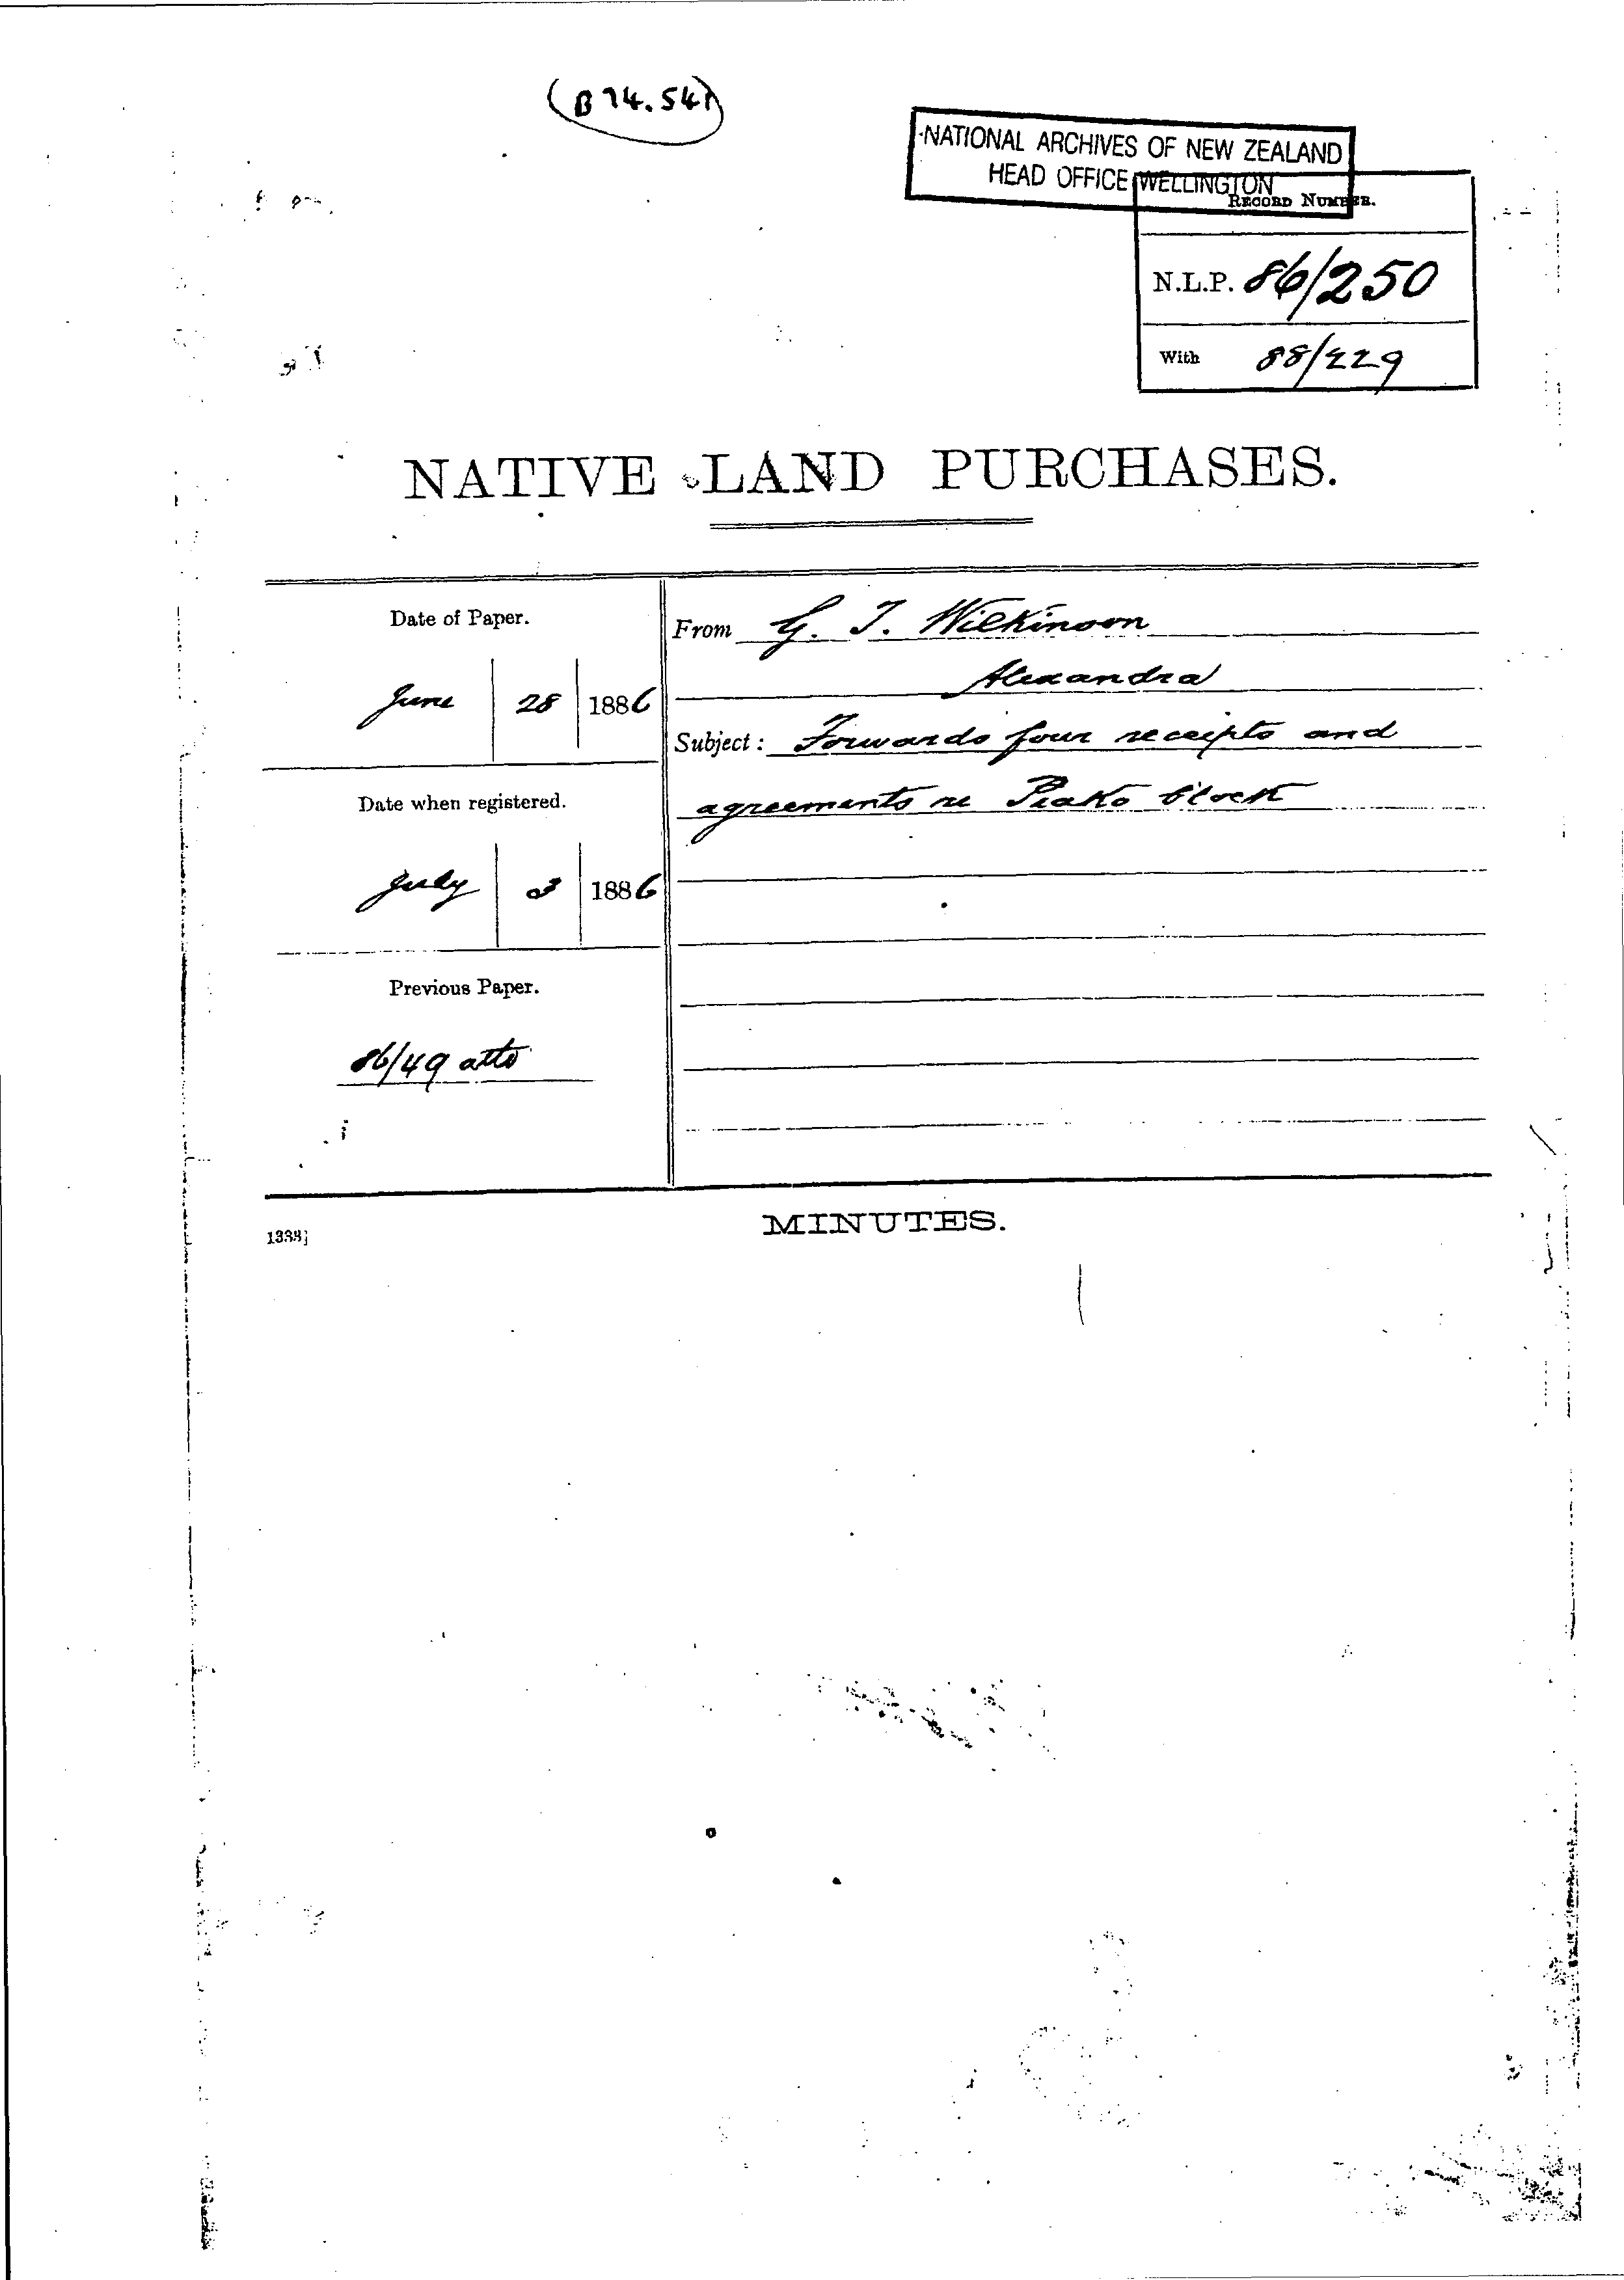 (B 74.54)
NATIONAL ARCHIVES OF NEW ZEALAND
HEAD OFFICE WELLINGTON
RECORD NUMBER.
N.L.P. 86/250
With 88/229
NATIVE LAND PURCHASES.
Date of Paper.
June 28 1886
From G. T. Wilkinson
Alexandra
Subject: Forwards four receipts and
agreements re Piako block
Date when registered.
July 3 1886
Previous Paper.
86/49 atto
MINUTES.